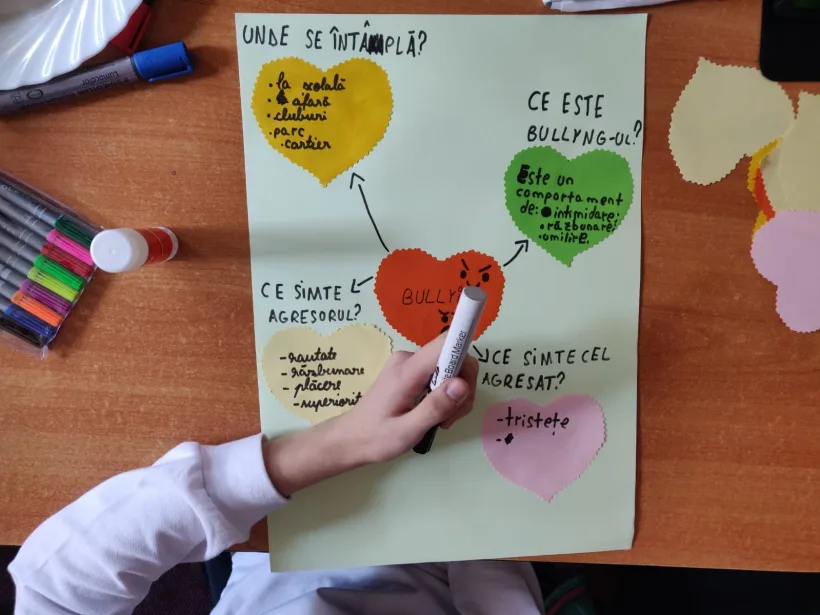 UNDE SE ÎNTÂMPLĂ?
· la școlală
· afară
· cluburi
· parc
· cartier
CE ESTE
BULLYNG-UL?
Este un
comportament
de: intimidare;
· răzbunare;
· umilire.
BULLY
CE SIMTE
AGRESORUL?
- răutate
- răzbunare
- plăcere
- superiorit
CE SIMTE CEL
AGRESAT?
- tristețe
-
Board Marker
Lumocolor